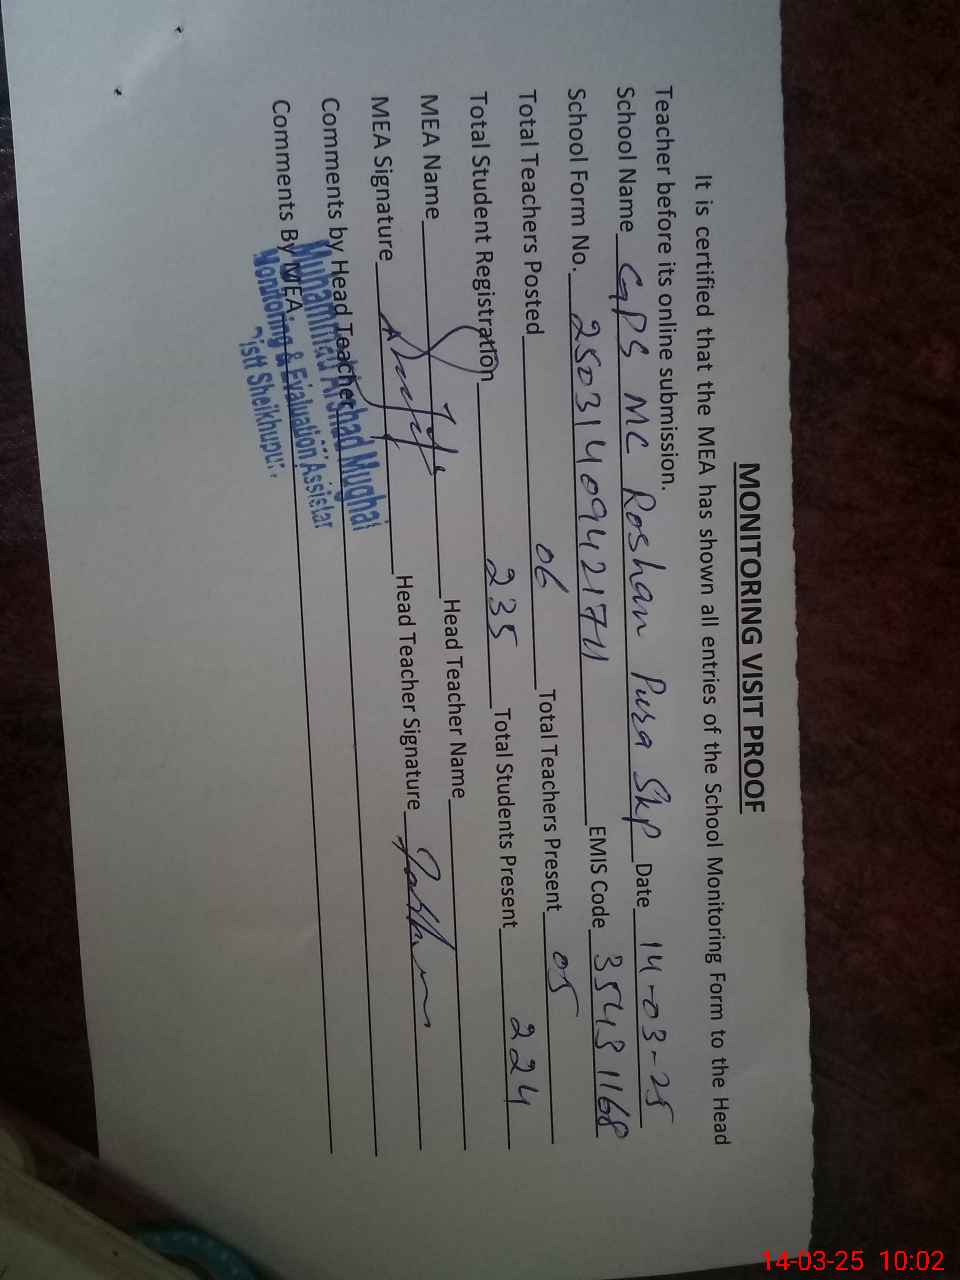 MONITORING VISIT PROOF
It is certified that the MEA has shown all entries of the School Monitoring Form to the Head
Teacher before its online submission.
School Name GPS MC Roshan Pura Skp Date 14-03-25
School Form No. 25031409421711 EMIS Code 35431168
Total Teachers Posted 06 Total Teachers Present 05
Total Student Registration 235 Total Students Present 224
MEA Name Head Teacher Name
MEA Signature Head Teacher Signature
Comments by Head Teacher
Comments By MEA
Muhammad Arshad Mughal
Monitoring & Evaluation Assistan
Distt Sheikhupur
14-03-25 10:02